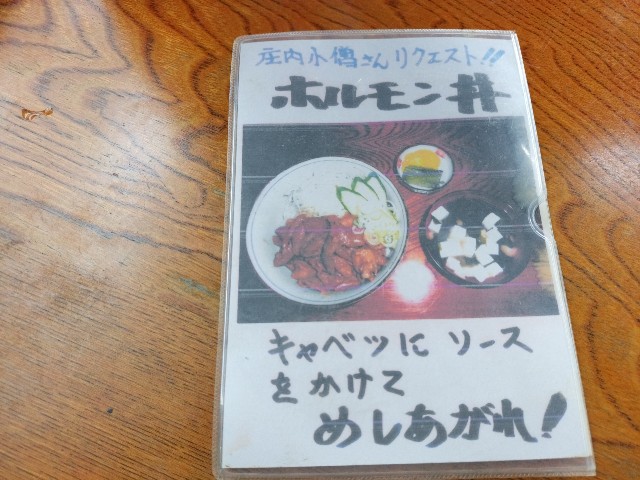 庄内小僧さんリクエスト!!
ホルモン丼
キャベツに ソース
をかけて
めしあがれ!